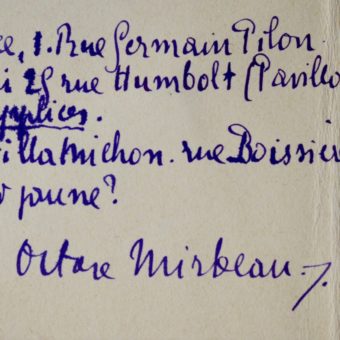 e, 1. Rue Germain Pilon.
i 25 rue Humbolt (Pavillo
plices.
illa Michon. rue Boissiè
jaune?
Octave Mirbeau.